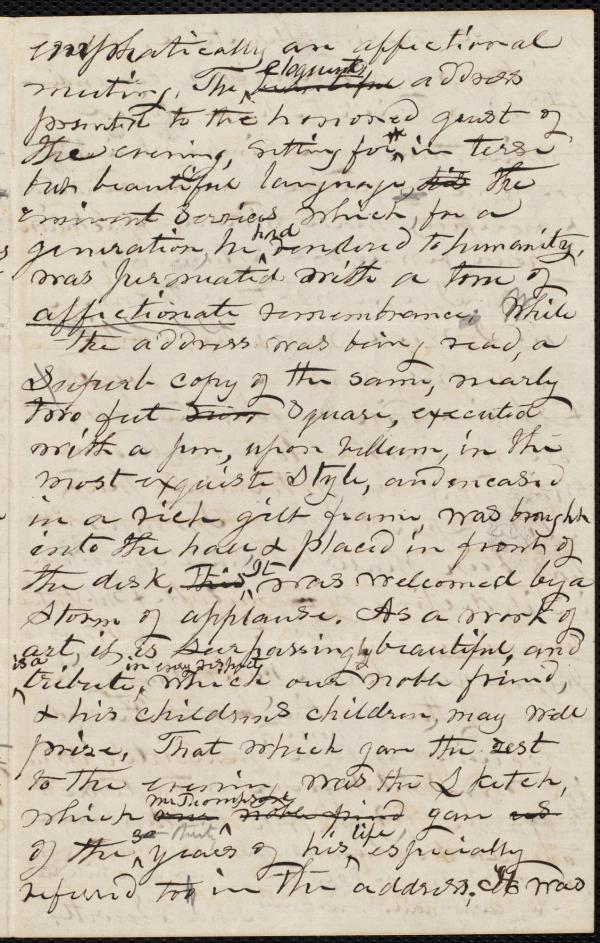 emphatically an affectional
meeting. The eloquent beautiful address
presented to the honored guest of
the evening, setting forth in terse
but beautiful language, his the
eminent services which, for a
generation, he had rendered to humanity,
was permeated with a tone of
affectionate remembrance. While
the address was being read, a
Superb copy of the same, nearly
two feet square, executed
with a pen, upon vellum, in the
most exquiste style, and encased
in a rich gilt frame, was brought
into the hall, & placed in front of
the desk. This It was welcomed by a
storm of applause. As a work of
art, it is surpassingly beautiful, and
is a tribute, in every respect, which our noble friend,
& his children's children, may well
prize. That which gave the zest
to the evening was the Sketch,
which Mr Thompson our noble friend gave us
of the 30 thirty years of his life, especially
referred to in the address. It was